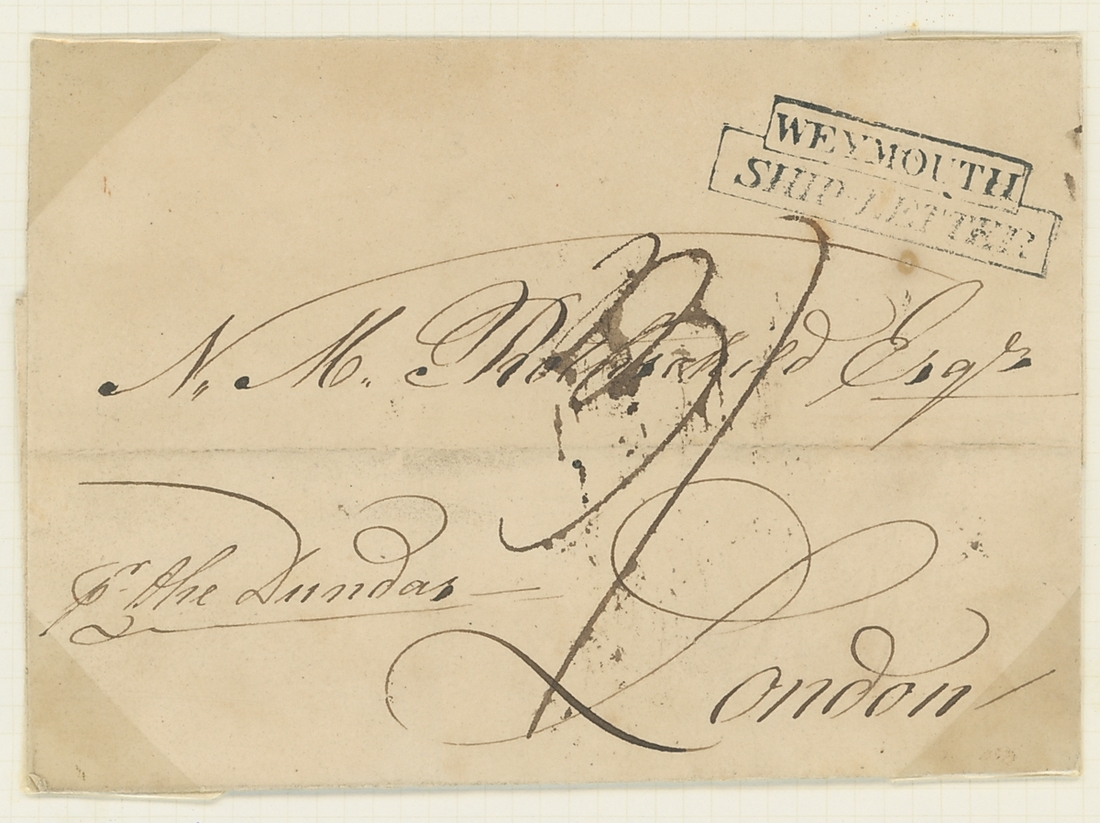 WEYMOUTH
SHIP LETTER
N. M. Rothschild Esqre
pr. the Dundas
London